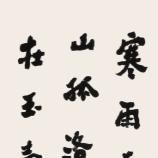 寒雨
山孤洛
在玉